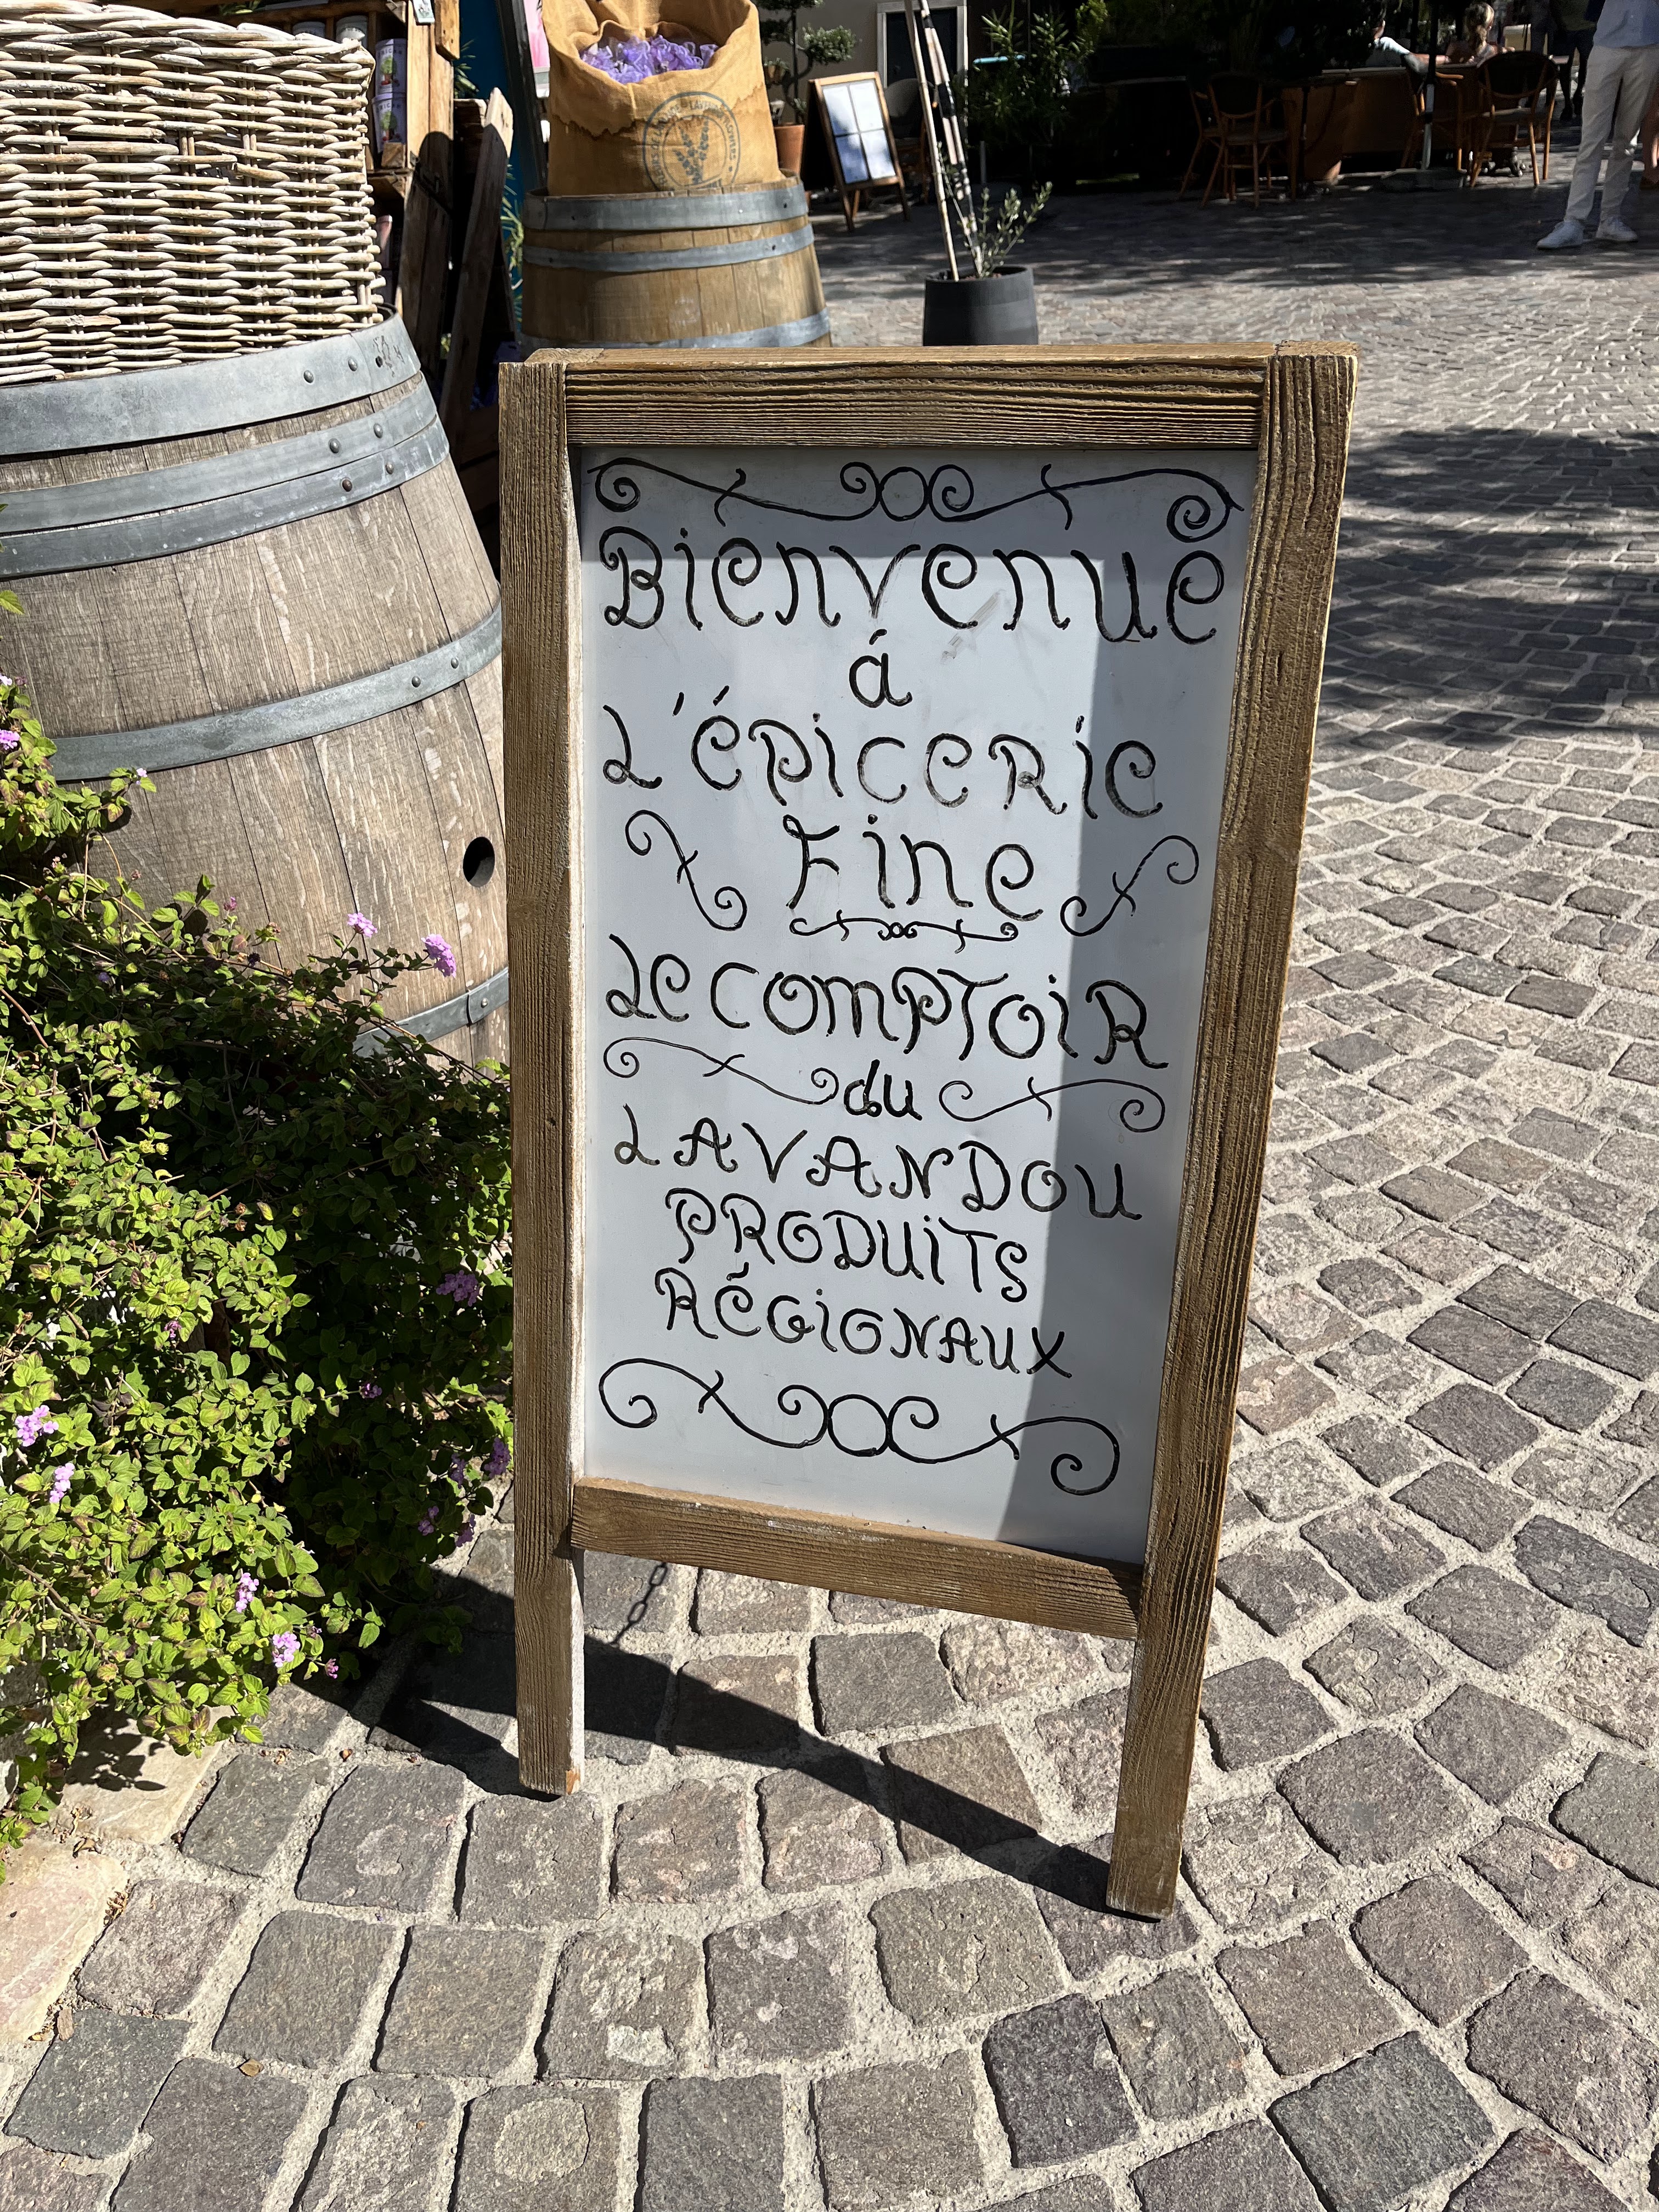 Bienvenue
á
L'épicerie
Fine
Le comptoir
du
LAVANDOU
PRODUITS
RÉGIONAUX